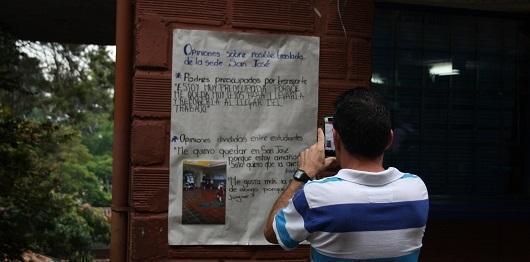 Opiniones sobre posible traslado
de la sede San José
Padres preocupados por transporte
"ESTOY MUY PREOCUPADA PORQUE
ME QUEDA MUY LEJOS PARA LLEVARLA
Y RECOGERLA AL LLEGAR DEL
TRABAJO"
Opiniones divididas entre estudiantes
"Me quiero quedar en San José
porque estoy amañada
Solo quiero que la
"Me gusta más la
de abajo porque
jugar"